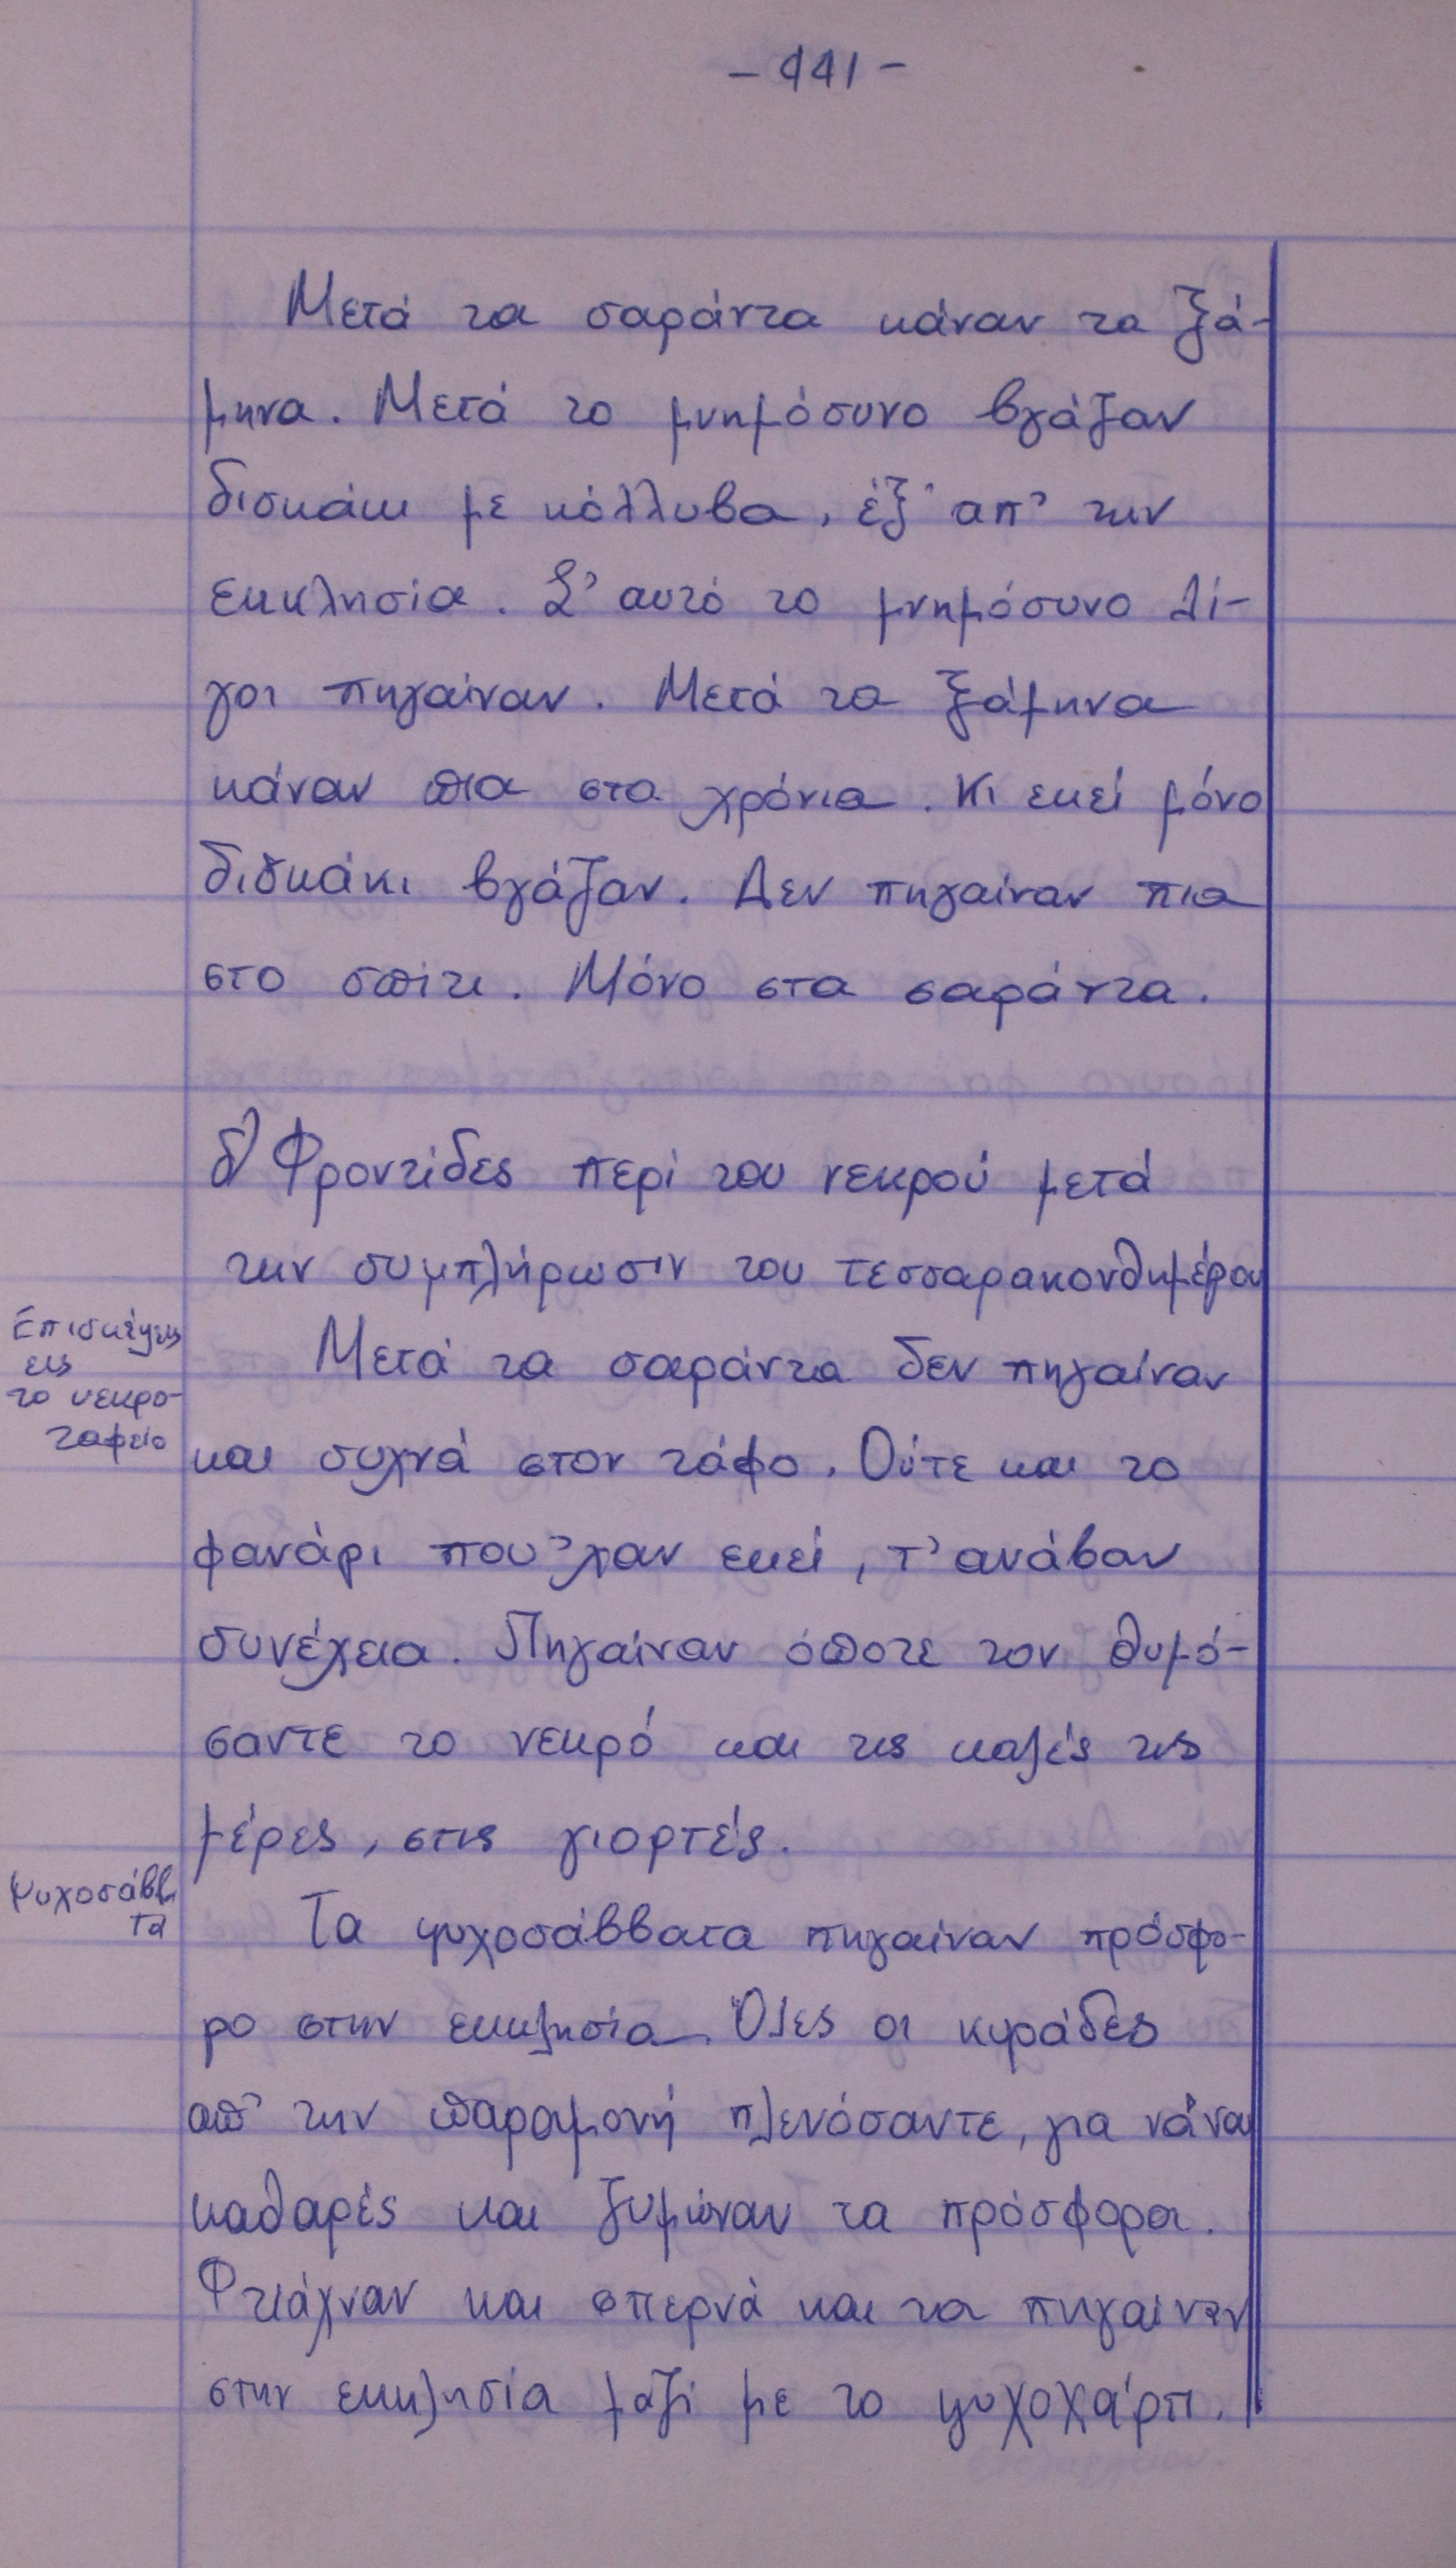 - 441 -
Μετά τα σαράντα κάναν τα ξά-
μηνα. Μετά το μνημόσυνο βγάζαν
δισκάκι με κόλλυβα, έξ' απ' την
εκκλησία. Σ' αυτό το μνημόσυνο λί-
γοι πηγαίναν. Μετά τα ξάμηνα
κάναν πια στα χρόνια. Κι εκεί μόνο
δισκάκι βγάζαν. Δεν πηγαίναν πια
στο σπίτι. Μόνο στα σαράντα.
δ) Φροντίδες περί του νεκρού μετά
την συμπλήρωσιν του τεσσαρακονθημέρου
Επισκέψεις
εις
το νεκρο-
ταφείο
Μετά τα σαράντα δεν πηγαίναν
και συχνά στον τάφο. Ούτε και το
φανάρι που 'χαν εκεί, τ' ανάβαν
συνέχεια. Πηγαίναν όποτε τον θυμό-
σαντε το νεκρό και τις καλές τις
μέρες, στις γιορτές.
Ψυχοσάββα
τα
Τα ψυχοσάββατα πηγαίναν πρόσφο-
ρο στην εκκλησία. Όλες οι κυράδες
απ' την παραμονή πλενόσαντε, για νάναι
καθαρές και ζυμώναν τα πρόσφορα.
Φτιάχναν και σπερνά και τα πηγαίναν
στην εκκλησία μαζί με το ψυχοχάρτι.